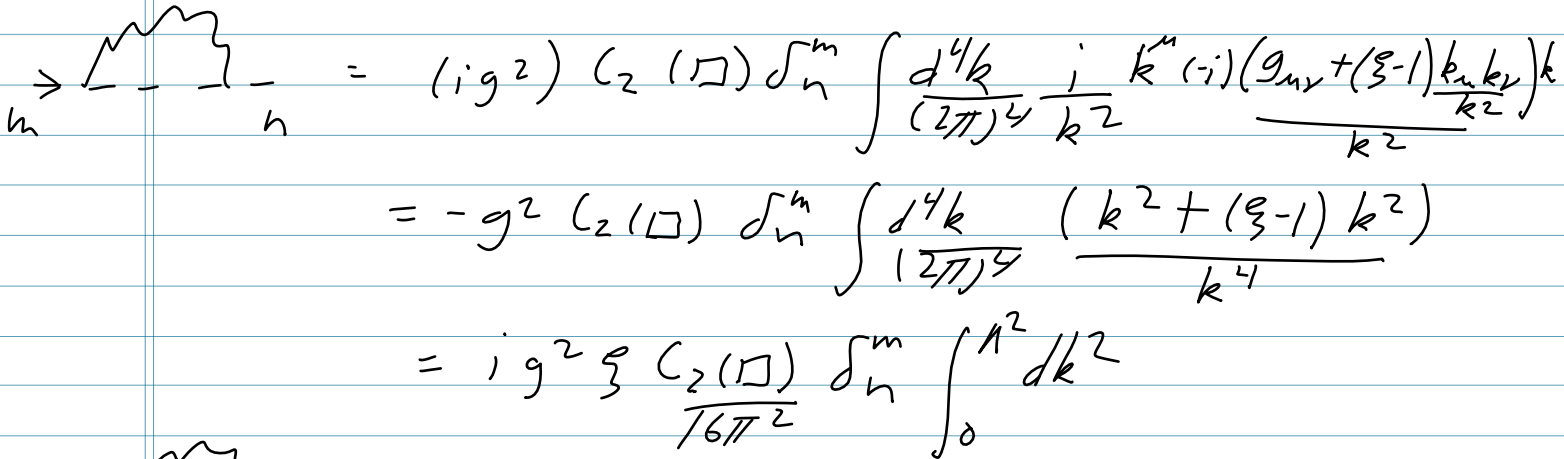 m → n = (ig²) C₂(□) δₙᵐ ∫ d⁴k/(2π)⁴ i/k² k^μ (-i) (g_μν + (ξ-1) k_μ k_ν/k²)/k² k
= -g² C₂(□) δₙᵐ ∫ d⁴k/(2π)⁴ (k² + (ξ-1) k²)/k⁴
= i g² ξ C₂(□)/16π² δₙᵐ ∫₀^Λ² dk²